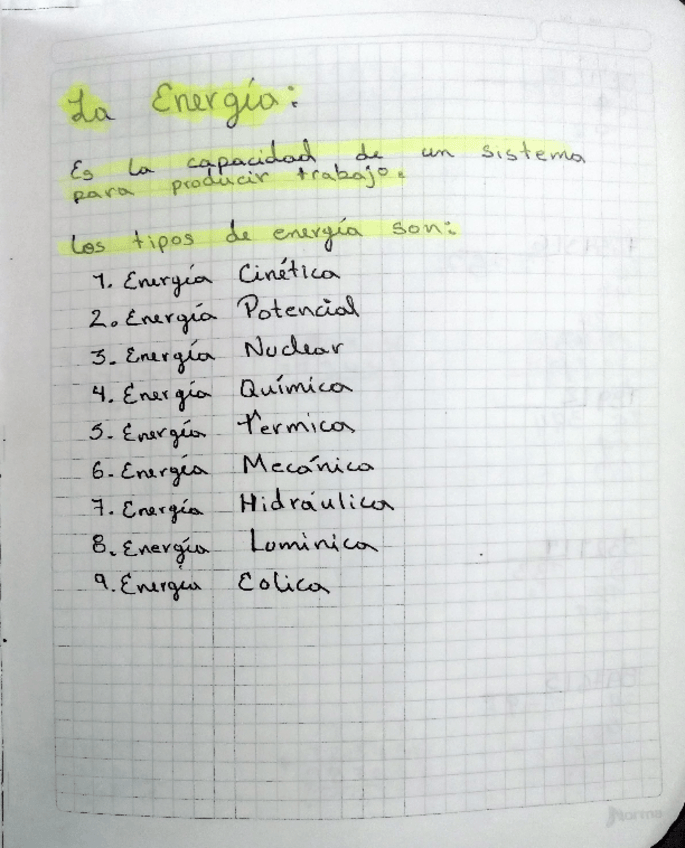 La Energía:
Es la capacidad de un sistema
para producir trabajo.
Los tipos de energía son:
1. Energía Cinética
2. Energía Potencial
3. Energía Nuclear
4. Energía Química
5. Energía Termica
6. Energía Mecánica
7. Energía Hidráulica
8. Energía Luminica
9. Energía Eolica
Norma